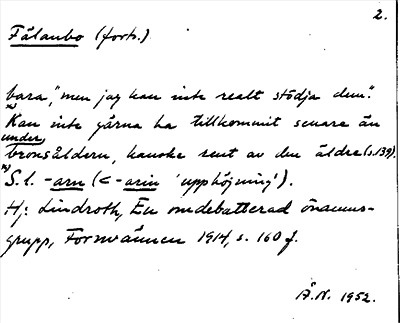 2.
Fålaubo (forts.)
bara," men jag kan inte realt stödja dem".
Kan inte gärna ha tillkommit senare än
under
bronsåldern, kanske sent av den äldre (s. 139).
S. l. -arn (<-arin 'upphöjning').
Hj. Lindroth, En omdebatterad önamns-
grupp, Fornvännen 1914, s. 160 f.
Å.N. 1952.